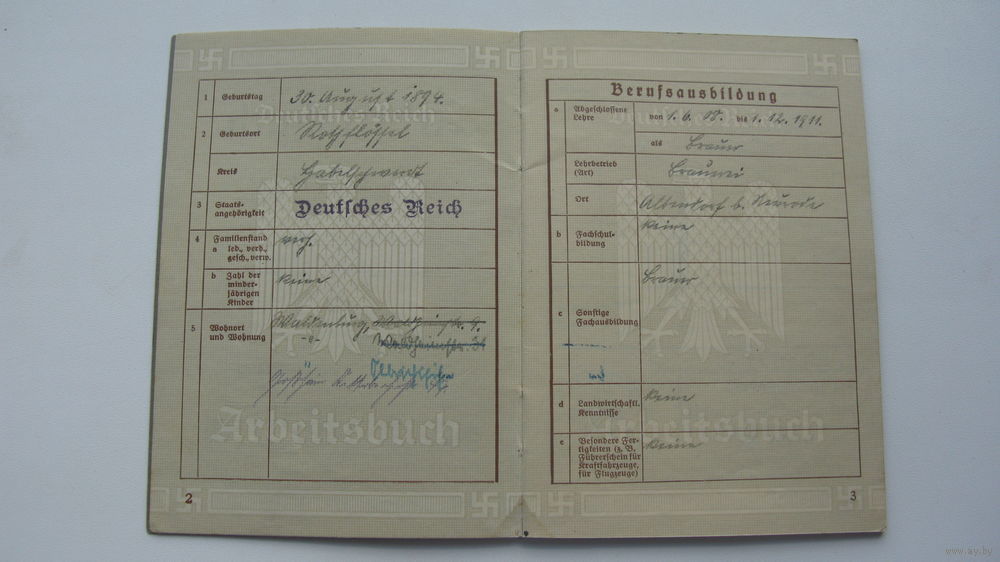 Deutsches Reich
1 Geburtstag 30. August 1894.
2 Geburtsort
Kreis Habelschwerdt
3 Staats-
angehörigkeit
Deutsches Reich
4 Familienstand verh.
a led., verh.,
gesch., verw.
b Zahl der keine
minder-
jährigen
Kinder
5 Wohnort Waldenburg,
und Wohnung
Arbeitsbuch
2
Berufsausbildung
a Abgeschlossene
Lehre
von 1. 6. 08. bis 1. 12. 1911.
als Brauer
Lehrbetrieb Brauerei
(Art)
Ort Altendorf b. Neurode
b Fachschul- keine
bildung
c Sonstige Brauer
Fachausbildung
d Landwirtschaftl. keine
Kenntnisse
e Besondere Fer- keine
tigkeiten (z. B.
Führerschein für
Kraftfahrzeuge,
für Flugzeuge)
Arbeitsbuch
3
www.ay.by